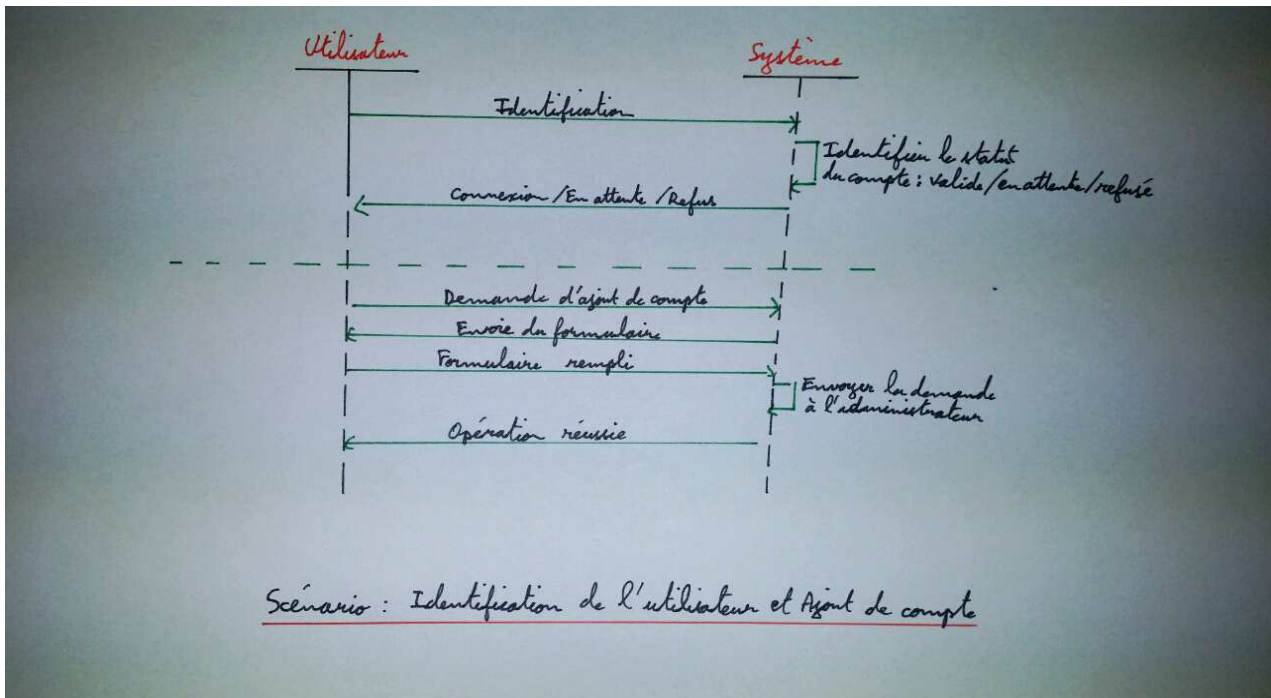 Utilisateur
Système
Identification
Identifier le statut
du compte : valide/en attente/refusé
Connexion /En attente /Refus
Demande d'ajout de compte
Envoie du formulaire
Formulaire rempli
Envoyer la demande
à l'administrateur
Opération réussie
Scénario : Identification de l'utilisateur et Ajout de compte